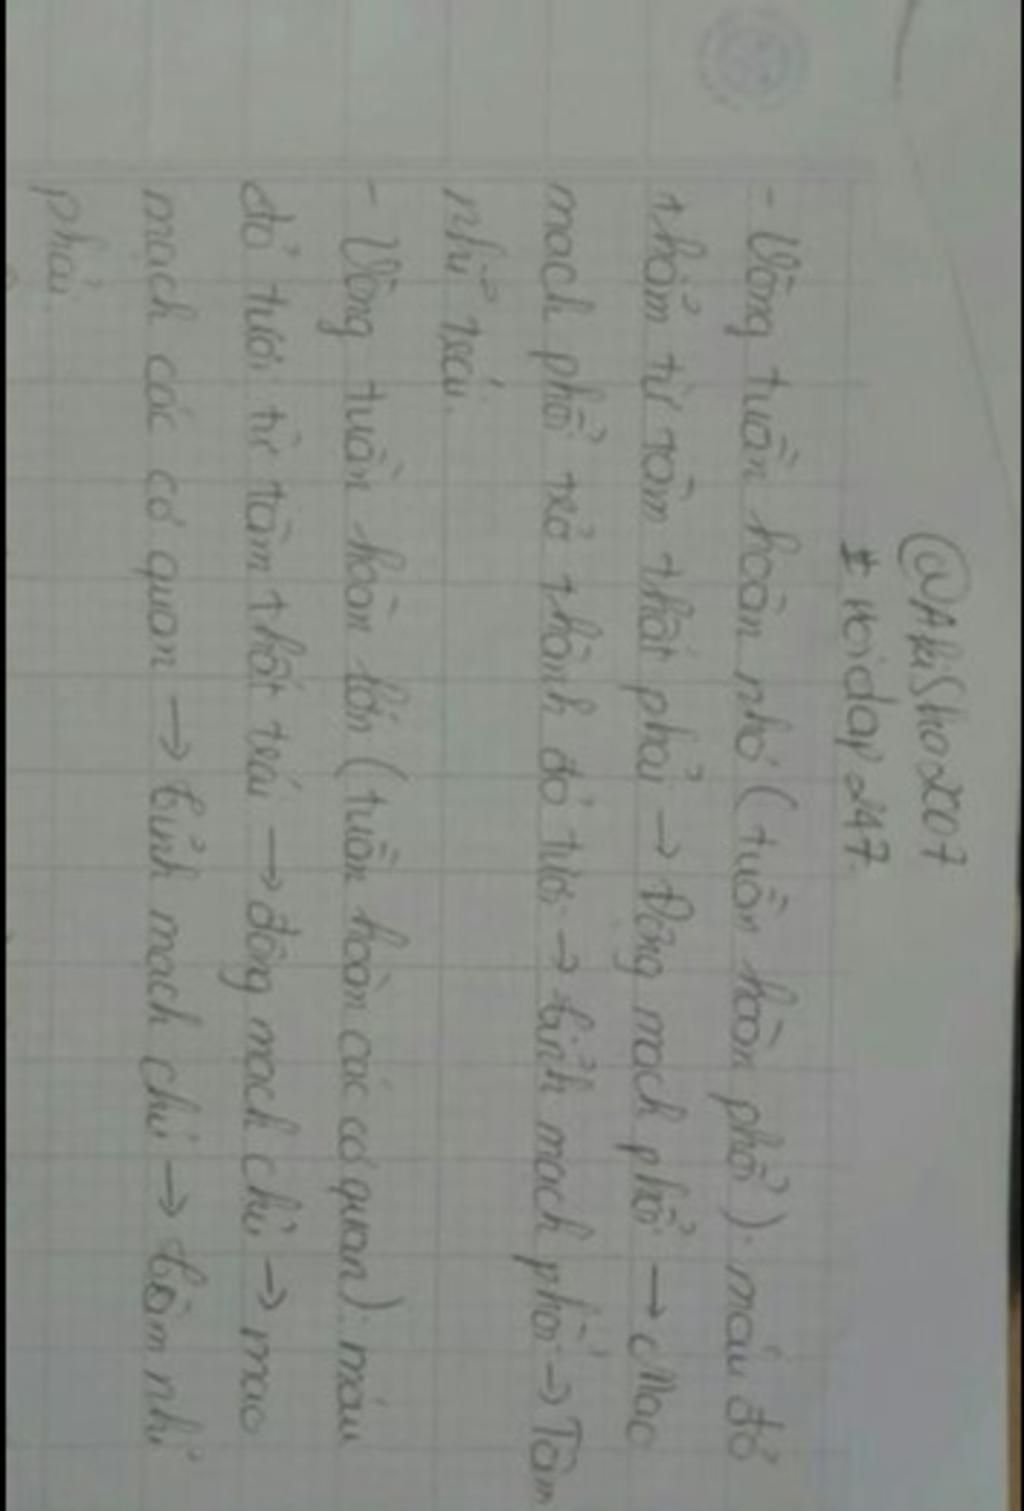 @AkiSho2007
# hoidap247.
- Vòng tuần hoàn nhỏ (tuần hoàn phổi): máu đỏ
thẩm từ tâm thất phải → Động mạch phổi → Mao
mạch phổi trở thành đỏ tươi → tĩnh mạch phổi → Tâm
nhĩ trái.
- Vòng tuần hoàn lớn (tuần hoàn các cơ quan): máu
đỏ tươi từ tâm thất trái → động mạch chủ → mao
mạch các cơ quan → tĩnh mạch chủ → tâm nhĩ
phải.